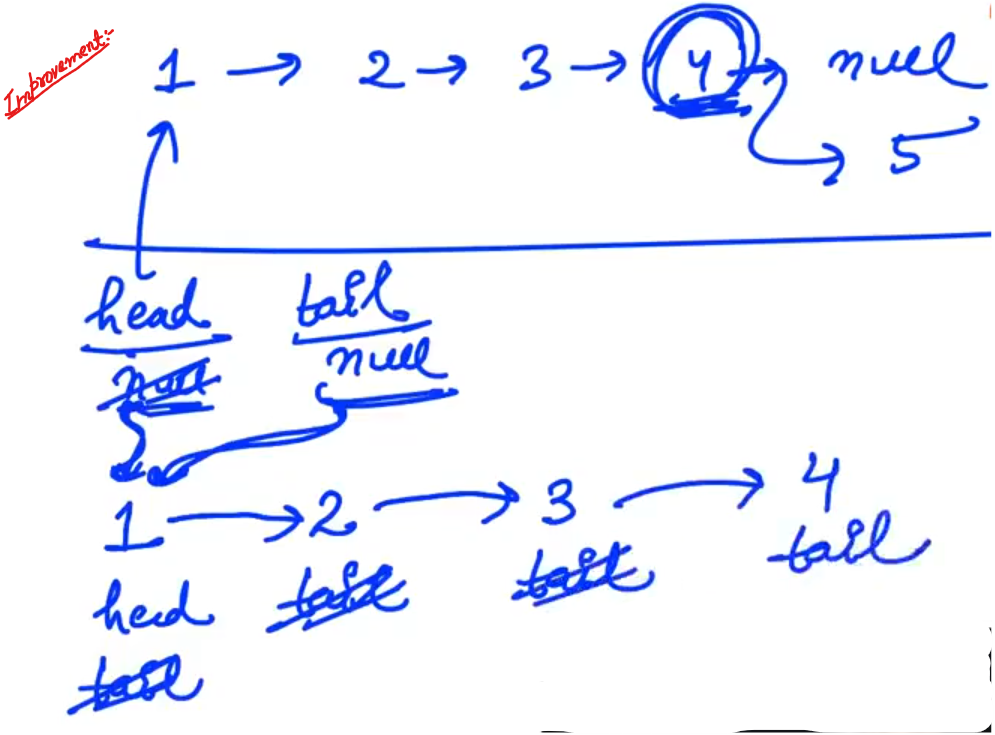 Improvement:-
1 → 2 → 3 → 4 → null
→ 5
head tail
null null
1 → 2 → 3 → 4
head tail tail tail
tail